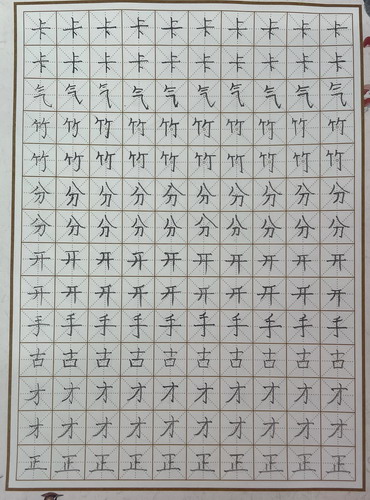 卡卡卡卡卡卡卡卡卡卡
卡卡卡卡卡卡卡卡卡卡
气气气气气气气气气气
竹竹竹竹竹竹竹竹竹竹
竹竹竹竹竹竹竹竹竹竹
分分分分分分分分分分
分分分分分分分分分分
开开开开开开开开开开
开开开开开开开开开开
手手手手手手手手手手
古古古古古古古古古古
才才才才才才才才才才
才才才才才才才才才才
正正正正正正正正正正